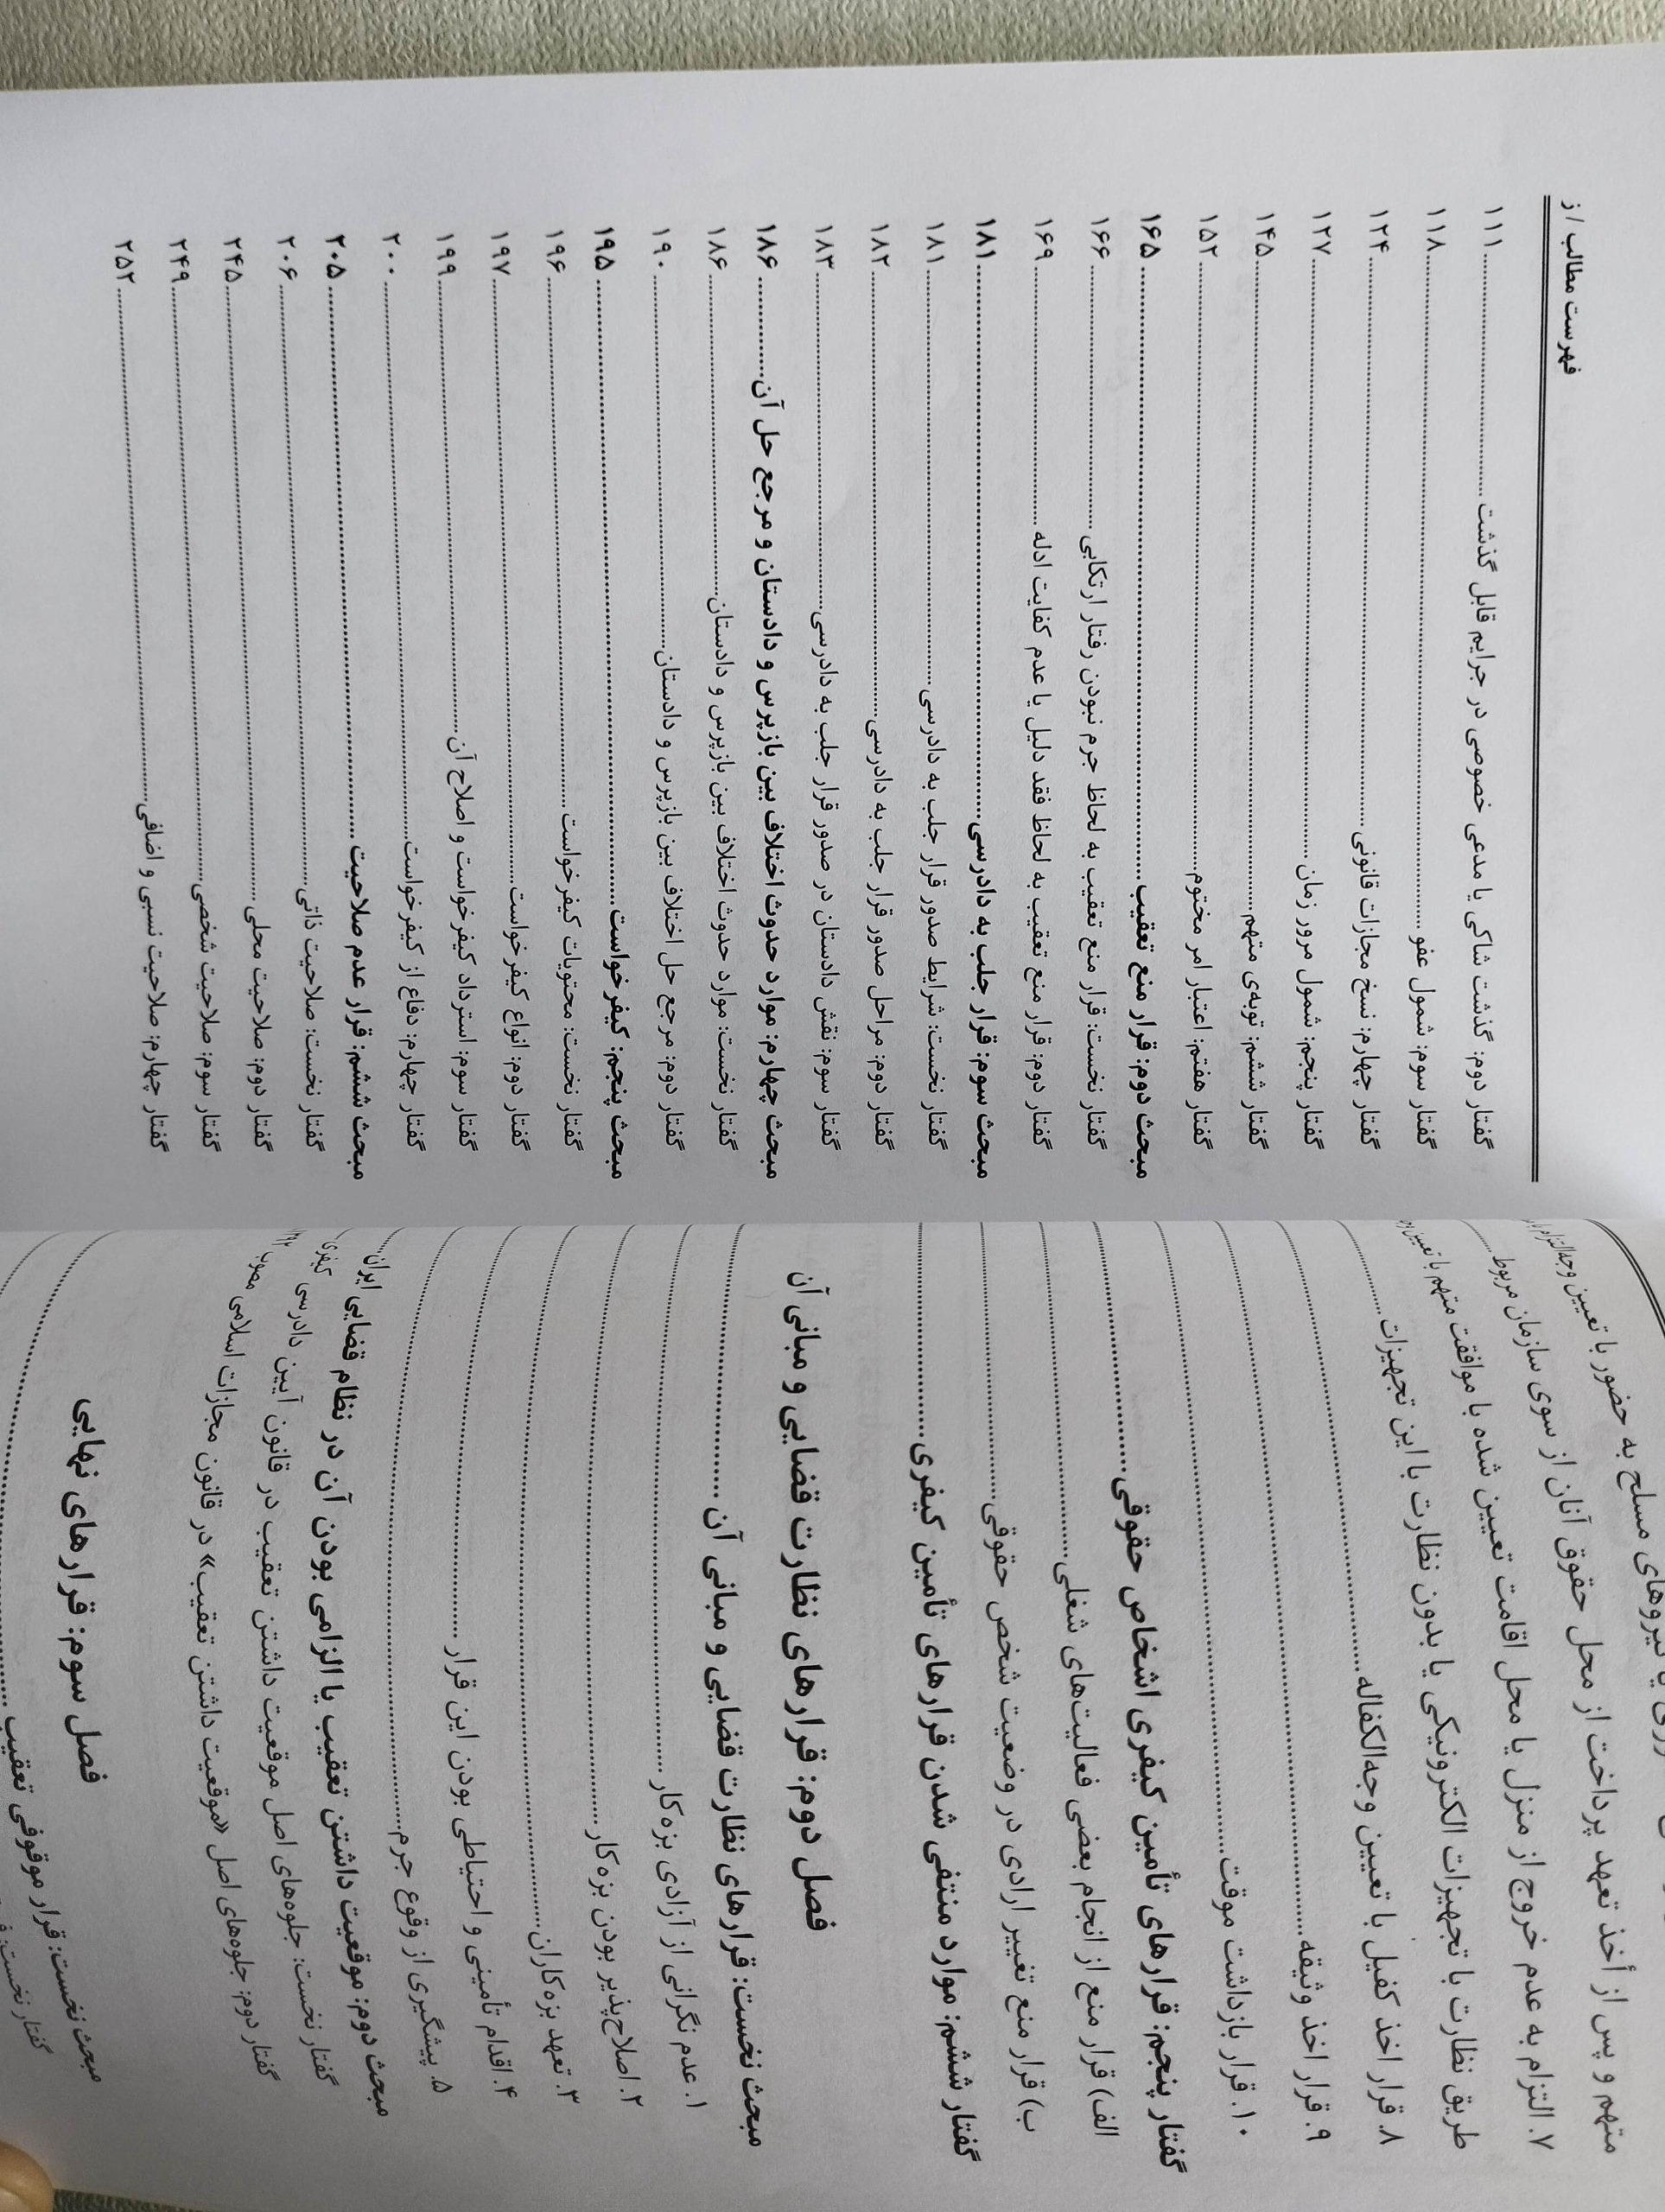 متهم و پس از أخذ تعهد پرداخت از محل حقوق آنان از سوی سازمان مربوط
۷. التزام به عدم خروج از منزل یا محل اقامت تعیین شده با موافقت متهم با تعیین
طریق نظارت با تجهیزات الکترونیکی یا بدون نظارت با این تجهیزات
۸. قرار اخذ کفیل با تعیین وجه‌الکفاله
۹. قرار اخذ وثیقه
۱۰. قرار بازداشت موقت
گفتار پنجم: قرارهای تأمین کیفری اشخاص حقوقی
الف) قرار منع از انجام بعضی فعالیت‌های شغلی
ب) قرار منع تغییر ارادی در وضعیت شخص حقوقی
گفتار ششم: موارد منتفی شدن قرارهای تأمین کیفری
فصل دوم: قرارهای نظارت قضایی و مبانی آن
مبحث نخست: قرارهای نظارت قضایی و مبانی آن
۱. عدم نگرانی از آزادی بزه‌کار
۲. اصلاح‌پذیر بودن بزه‌کار
۳. تعهد بزه‌کاران
۴. اقدام تأمینی و احتیاطی بودن این قرار
۵. پیشگیری از وقوع جرم
مبحث دوم: موقعیت داشتن تعقیب یا الزامی بودن آن در نظام قضایی ایران
گفتار نخست: جلوه‌های اصل موقعیت داشتن تعقیب در قانون آیین دادرسی کیفری
گفتار دوم: جلوه‌های اصل «موقعیت داشتن تعقیب» در قانون مجازات اسلامی مصوب
فصل سوم: قرارهای نهایی
مبحث نخست: قرار موقوفی تعقیب
گفتار نخست:
فهرست مطالب / ز
گفتار دوم: گذشت شاکی یا مدعی خصوصی در جرایم قابل گذشت ۱۱۱
گفتار سوم: شمول عفو ۱۱۸
گفتار چهارم: نسخ مجازات قانونی ۱۲۴
گفتار پنجم: شمول مرور زمان ۱۲۷
گفتار ششم: توبه‌ی متهم ۱۴۵
گفتار هفتم: اعتبار امر مختوم ۱۵۲
مبحث دوم: قرار منع تعقیب ۱۶۵
گفتار نخست: قرار منع تعقیب به لحاظ جرم نبودن رفتار ارتکابی ۱۶۶
گفتار دوم: قرار منع تعقیب به لحاظ فقد دلیل یا عدم کفایت ادله ۱۶۹
مبحث سوم: قرار جلب به دادرسی ۱۸۱
گفتار نخست: شرایط صدور قرار جلب به دادرسی ۱۸۱
گفتار دوم: مراحل صدور قرار جلب به دادرسی ۱۸۲
گفتار سوم: نقش دادستان در صدور قرار جلب به دادرسی ۱۸۳
مبحث چهارم: موارد حدوث اختلاف بین بازپرس و دادستان و مرجع حل آن ۱۸۶
گفتار نخست: موارد حدوث اختلاف بین بازپرس و دادستان ۱۸۶
گفتار دوم: مرجع حل اختلاف بین بازپرس و دادستان ۱۹۰
مبحث پنجم: کیفرخواست ۱۹۵
گفتار نخست: محتویات کیفرخواست ۱۹۶
گفتار دوم: انواع کیفرخواست ۱۹۷
گفتار سوم: استرداد کیفرخواست و اصلاح آن ۱۹۹
گفتار چهارم: دفاع از کیفرخواست ۲۰۰
مبحث ششم: قرار عدم صلاحیت ۲۰۵
گفتار نخست: صلاحیت ذاتی ۲۰۶
گفتار دوم: صلاحیت محلی ۲۴۵
گفتار سوم: صلاحیت شخصی ۲۴۹
گفتار چهارم: صلاحیت نسبی و اضافی ۲۵۲